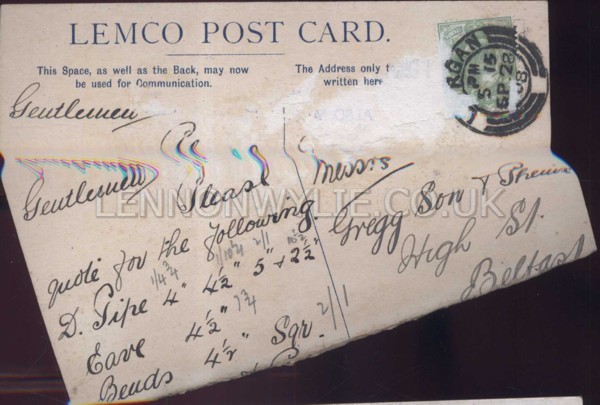 LEMCO POST CARD.
This Space, as well as the Back, may now
be used for Communication.
The Address only t
written here
RGAN
5 15 PM
SP 28
08
Gentlemen
Gentlemen Please
quote for the following
1/4¾ 1/10½ 2/1
D. Pipe 4" 4½" 5" + 2½"
Eave 4½" 1¾
Bends 4½" Sqr 2/1
Messrs
Gregg Son &
High St.
Belfast
LENNONWYLIE.CO.UK